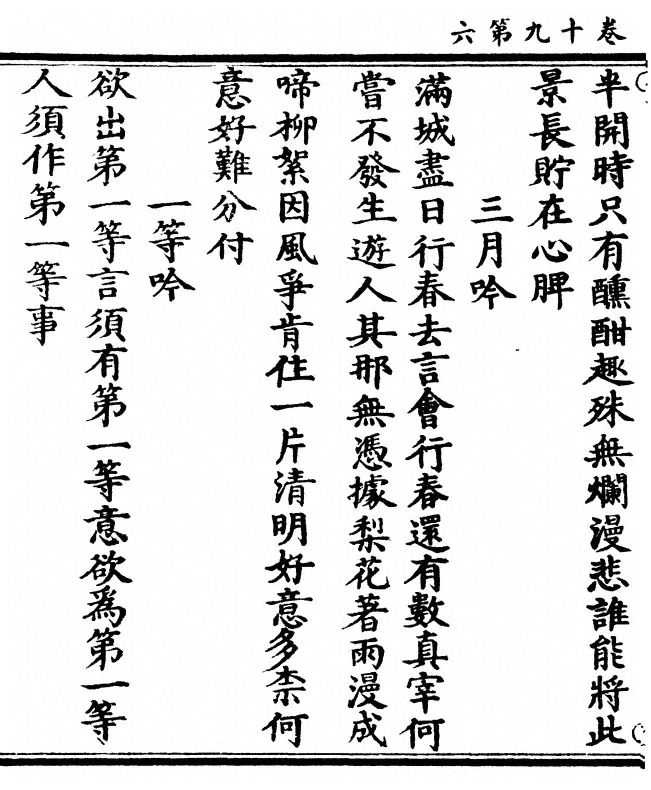 卷十九第六
半開時只有醺酣趣殊無爛漫悲誰能將此
景長貯在心脾
三月吟
滿城盡日行春去言會行春還有數真宰何
嘗不發生遊人其那無憑據梨花著雨漫成
啼柳絮因風爭肯住一片清明好意多柰何
意好難分付
一等吟
欲出第一等言須有第一等意欲爲第一等
人須作第一等事